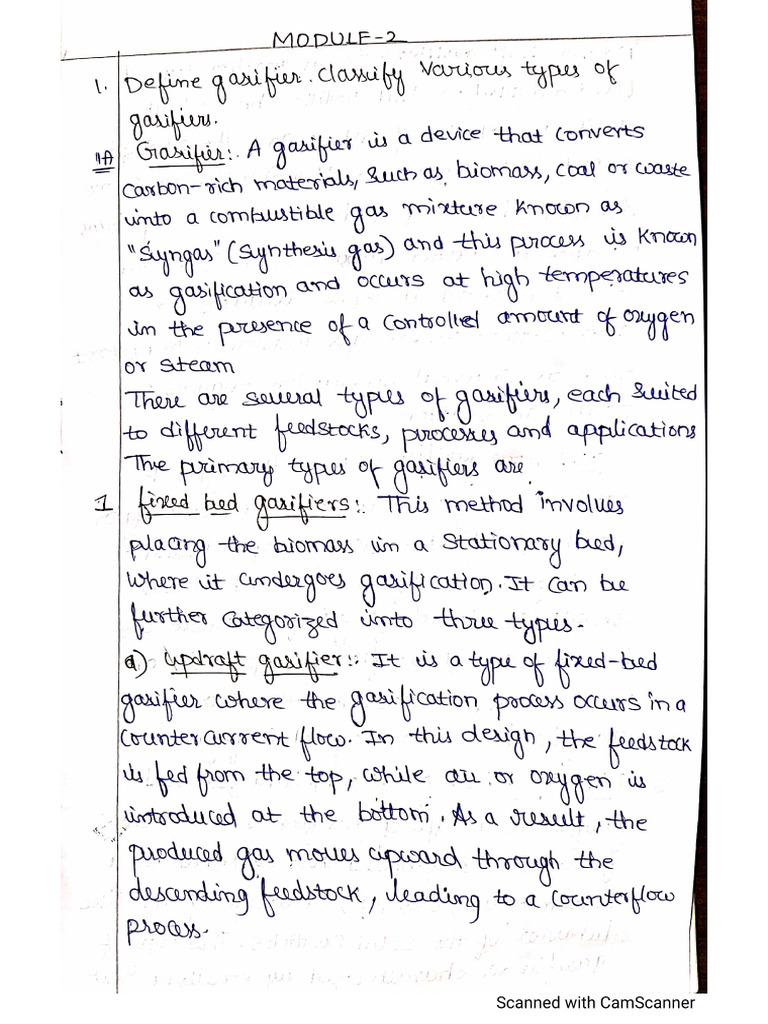 MODULE-2
1. Define gasifier. Classify various types of
gasifiers.
1A Gasifier:. A gasifier is a device that converts
carbon-rich materials, such as biomass, coal or waste
into a combustible gas mixture known as
"Syngas" (Synthesis gas) and this process is known
as gasification and occurs at high temperatures
in the presence of a controlled amount of oxygen
or steam
There are several types of gasifiers, each suited
to different feedstocks, processes and applications
The primary types of gasifiers are
1 fixed bed gasifiers:. This method involves
placing the biomass in a stationary bed,
where it undergoes gasification. It can be
further categorized into three types.
a) updraft gasifier:. It is a type of fixed-bed
gasifier where the gasification process occurs in a
counter current flow. In this design, the feedstock
is fed from the top, while air or oxygen is
introduced at the bottom. As a result, the
produced gas moves upward through the
descending feedstock, leading to a counterflow
process.
Scanned with CamScanner